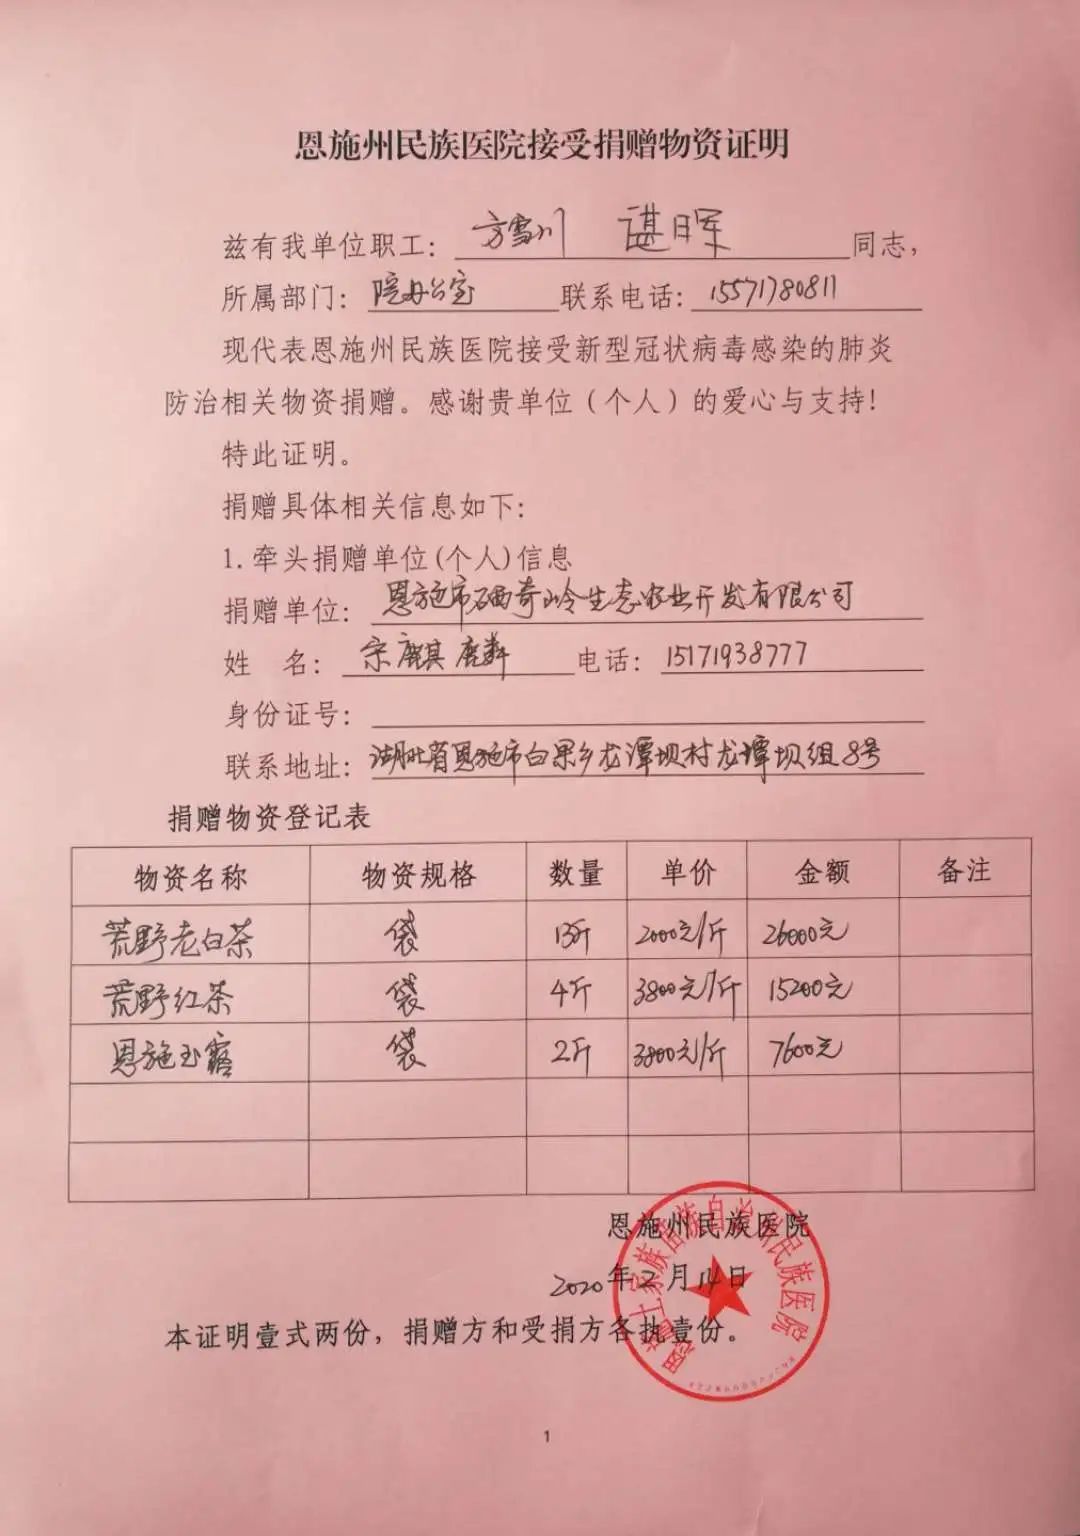 恩施州民族医院接受捐赠物资证明
兹有我单位职工：方雪川 谌晖 同志，
所属部门：院办公室 联系电话：15571780811
现代表恩施州民族医院接受新型冠状病毒感染的肺炎
防治相关物资捐赠。感谢贵单位（个人）的爱心与支持！
特此证明。
捐赠具体相关信息如下：
1.牵头捐赠单位(个人)信息
捐赠单位：恩施市硒奇岭生态农业开发有限公司
姓 名：宗麒麟 电话：15171938777
身份证号：
联系地址：湖北省恩施市白果乡龙潭坝村龙潭坝组8号
捐赠物资登记表
物资名称 物资规格 数量 单价 金额 备注
荒野老白茶 袋 13斤 2000元/斤 26000元
荒野红茶 袋 4斤 3800元/斤 15200元
恩施玉露 袋 2斤 3800元/斤 7600元
恩施州民族医院
2020年2月14日
恩施土家族苗族自治州民族医院
本证明壹式两份，捐赠方和受捐方各执壹份。
1